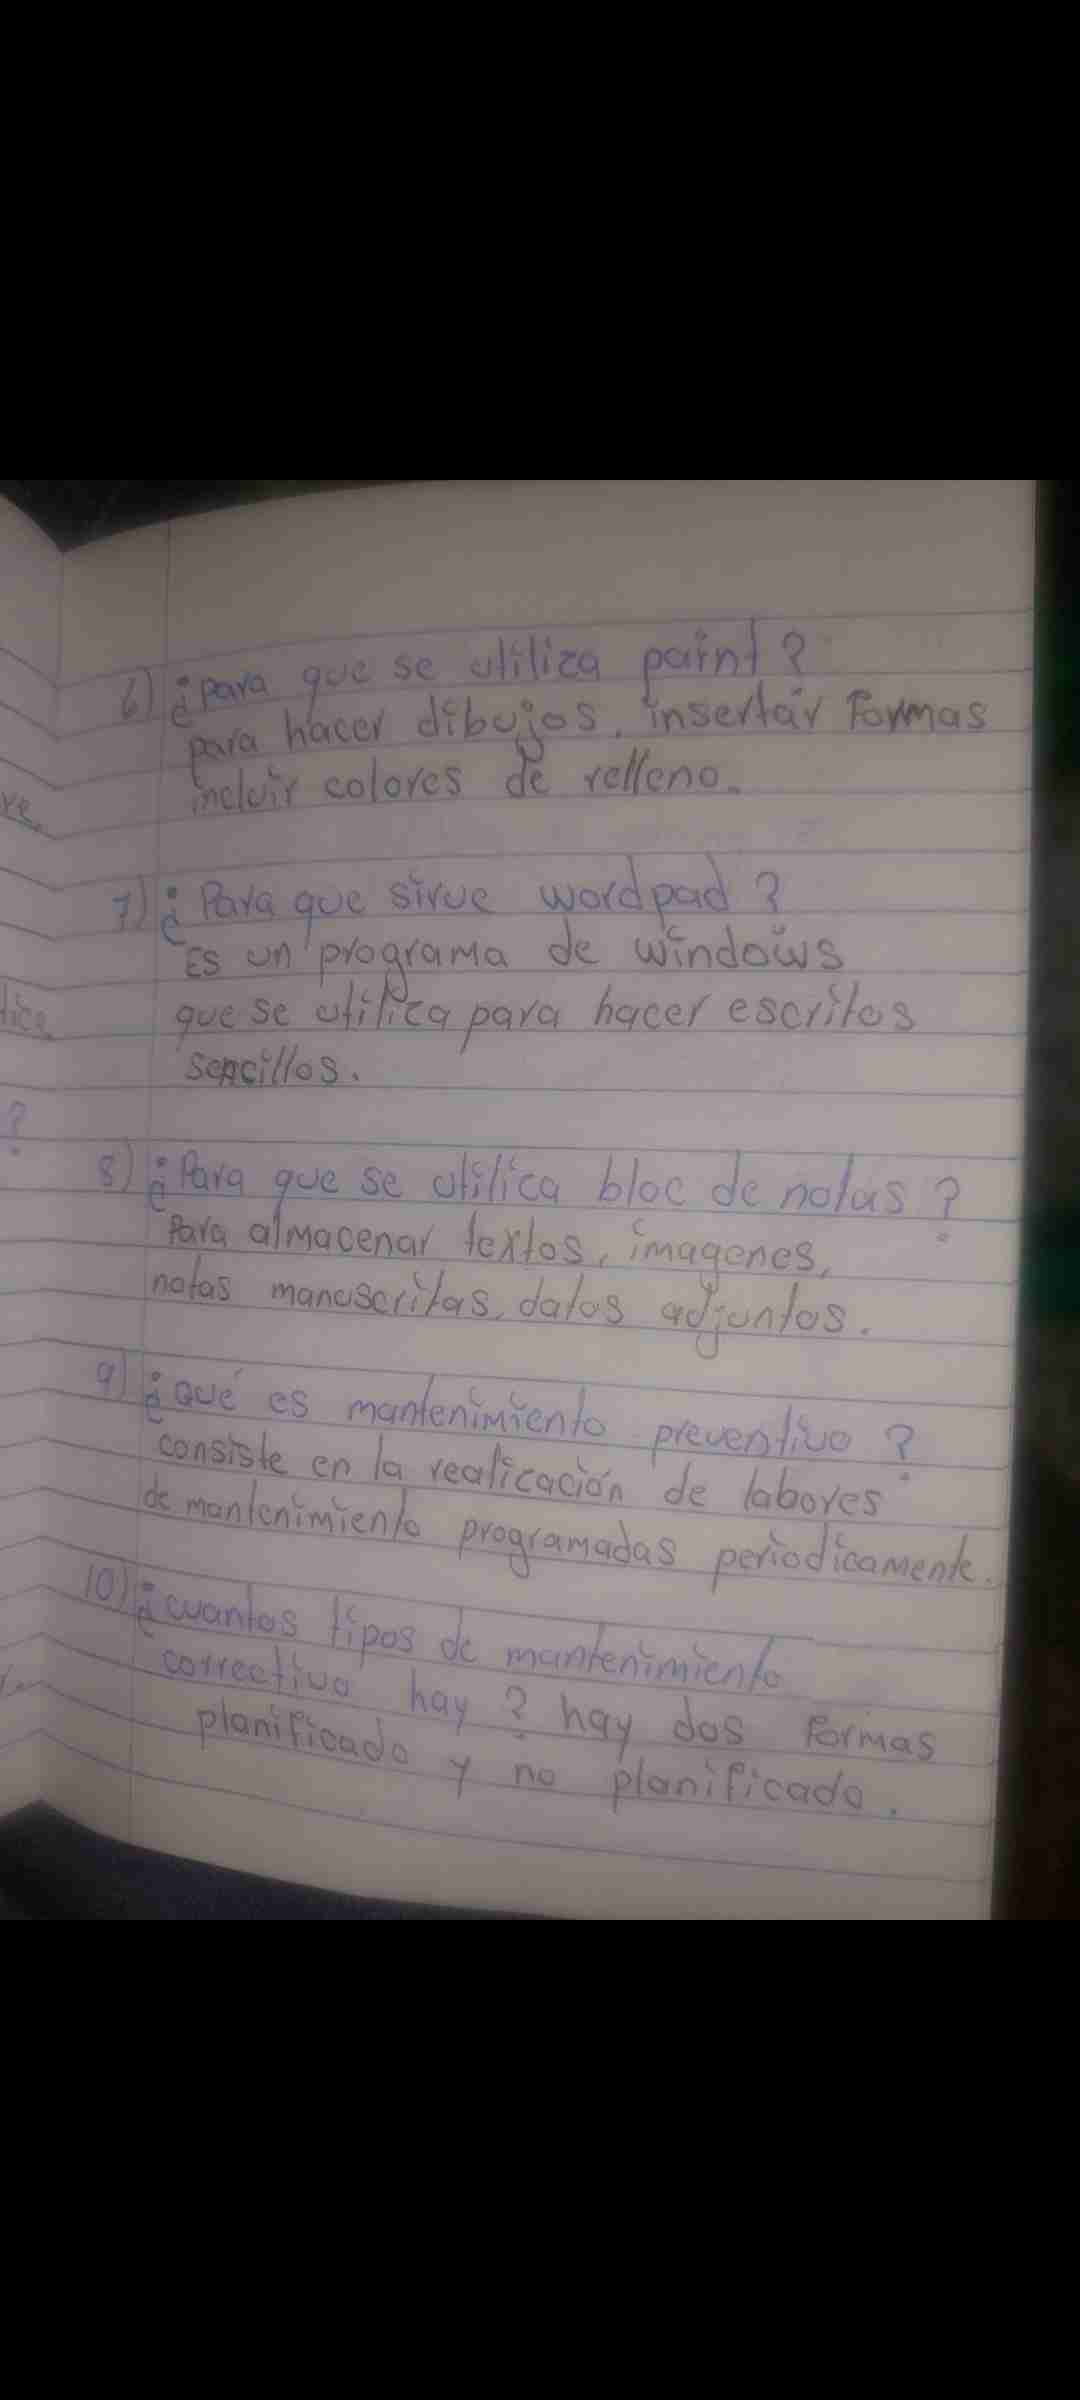 6) ¿para que se utiliza paint?
para hacer dibujos, insertar formas
incluir colores de relleno.
7) ¿Para que sirve wordpad?
Es un programa de windows
que se utiliza para hacer escritos
sencillos.
8) ¿Para que se utilica bloc de notas?
Para almacenar textos, imagenes,
notas manuscritas, datos adjuntos.
9) ¿qué es mantenimiento preventivo?
consiste en la realicación de labores
de mantenimiento programadas periodicamente.
10) ¿cuantos tipos de mantenimiento
correctivo hay? hay dos formas
planificado y no planificado.